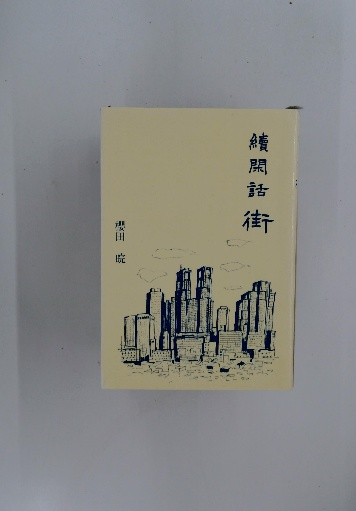 續閑話街
櫻田 暁